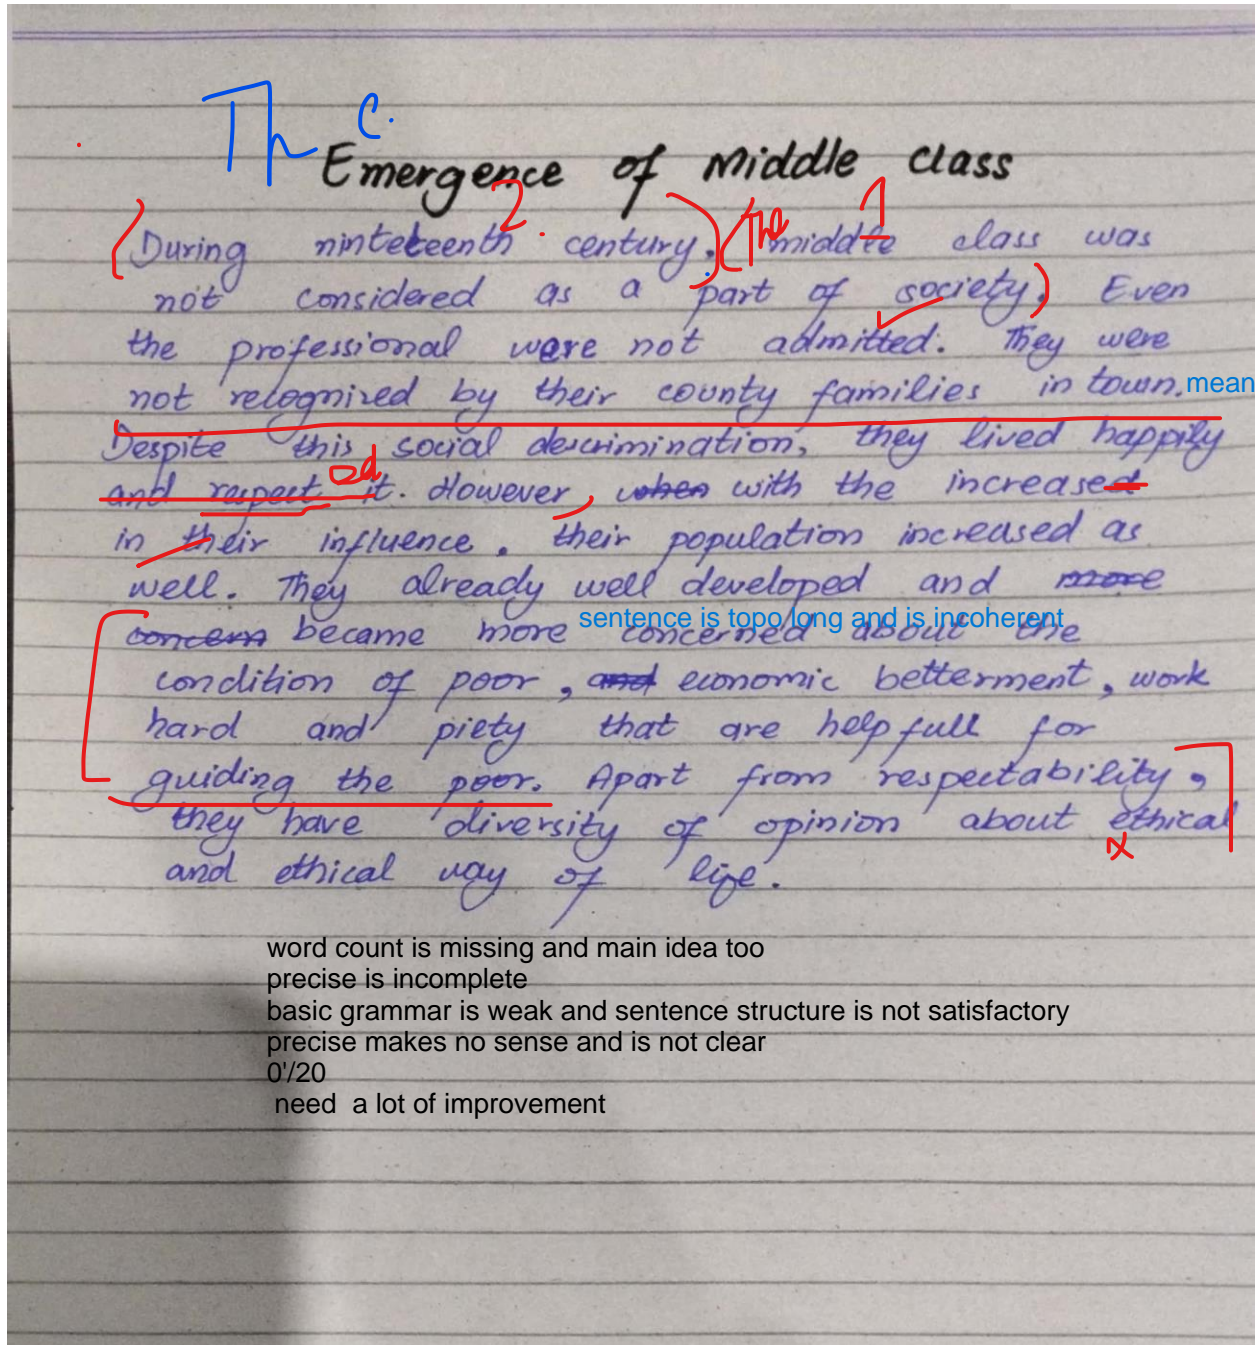 Th e.
Emergence of Middle class
2. The 1
During ninteteenth century. middle class was
not considered as a part of society. Even
the professional were not admitted. They were
not recognized by their county families in town. mean
Despite this social descrimination, they lived happily
ed
and respect it. However, when with the increased
in their influence. their population increased as
well. They already well developed and more
sentence is topo long and is incoherent
concern became more concerned about the
condition of poor, and economic betterment, work
hard and piety that are helpfull for
guiding the poor. Apart from respectability,
they have diversity of opinion about ethical
x
and ethical way of life.
word count is missing and main idea too
precise is incomplete
basic grammar is weak and sentence structure is not satisfactory
precise makes no sense and is not clear
0'/20
need a lot of improvement